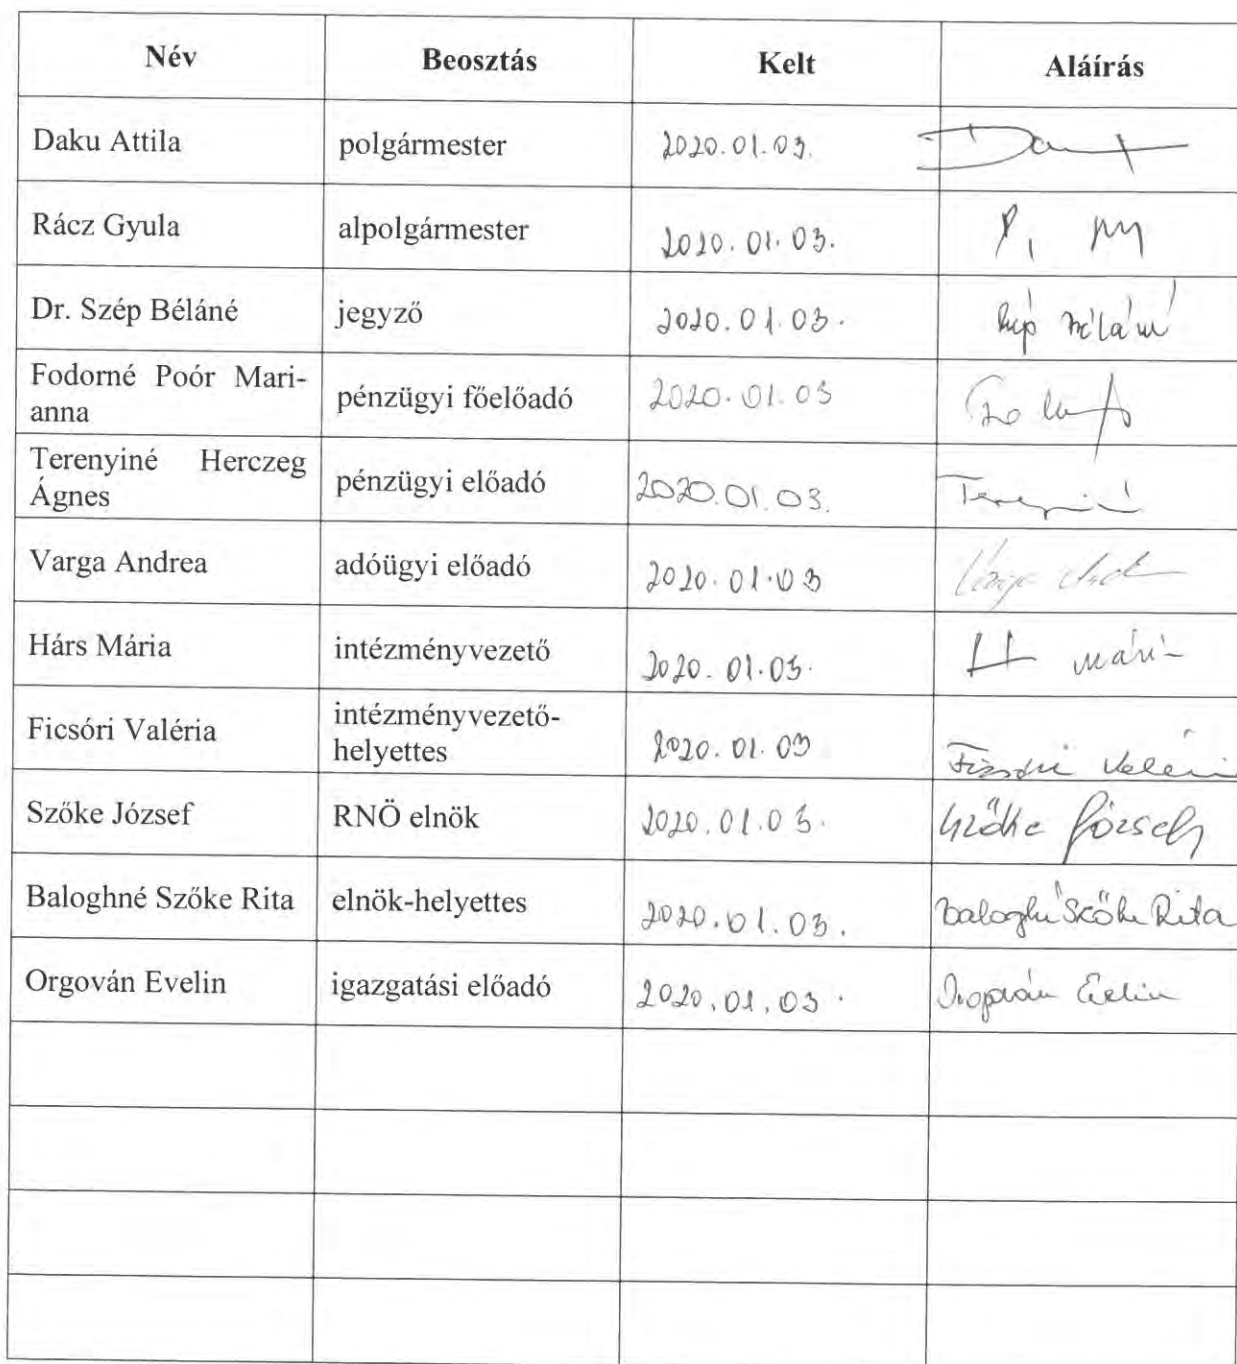 Név Beosztás Kelt Aláírás
Daku Attila polgármester 2020.01.03.
Rácz Gyula alpolgármester 2020.01.03.
Dr. Szép Béláné jegyző 2020.01.03.
Fodorné Poór Mari-
anna pénzügyi főelőadó 2020.01.03
Terenyiné Herczeg
Ágnes pénzügyi előadó 2020.01.03.
Varga Andrea adóügyi előadó 2020.01.03
Hárs Mária intézményvezető 2020.01.03.
Ficsóri Valéria intézményvezető-
helyettes 2020.01.03
Szőke József RNÖ elnök 2020.01.03. Szőke József
Baloghné Szőke Rita elnök-helyettes 2020.01.03. Baloghné Szőke Rita
Orgován Evelin igazgatási előadó 2020.01.03. Orgován Evelin